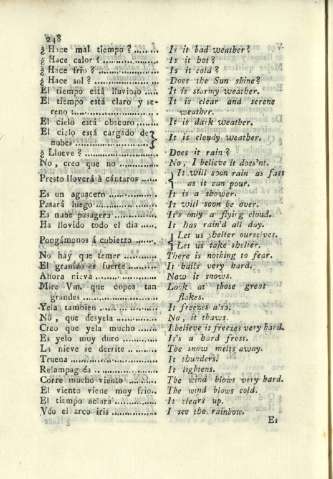 248
¿ Hace mal tiempo ? ........ Is it bad weather?
¿ Hace calor ? ................ Is it hot?
¿ Hace frio ? .................. Is it cold?
¿ Hace sol ? .................. Does the Sun shine?
El tiempo está lluvioso .... It is stormy weather.
El tiempo está claro y se- It is clear and serene
reno ........................ weather.
El cielo está obscuro ....... It is dark weather.
El cielo está cargado de
nubes ........................ It is cloudy weather.
¿ Llueve ? ..................... Does it rain?
No, creo que no ............ No, I believe it does'nt.
Presto lloverá á cántaros ..... It will soon rain as fast
as it can pour.
Es un aguacero ............... It is a shower.
Pasará luego .................. It will soon be over.
Es nube pasagera ............ It's only a flying cloud.
Ha llovido todo el dia ..... It has rain'd all day.
Pongámonos á cubierto ..... Let us shelter ourselves.
Let us take shelter.
No háy que temer ........... There is nothing to fear.
El granizo es fuerte ......... It hails very hard.
Ahora nieva .................. Now it snows.
Mire Vm. que copos tan Look at those great
grandes ..................... flakes.
Yela tambien ............... It freezes also.
Nó, que desyela ............ No, it thaws.
Creo que yela mucho ...... I believe it freezes very hard.
Es yelo muy duro ........... It's a hard frost.
La nieve se derrite ......... The snow melts away.
Truena ........................ It thunders.
Relampaguéa ............... It lightens.
Corre mucho viento ........ The wind blows very hard.
El viento viene muy frio.. The wind blows cold.
El tiempo aclara ............ It clears up.
Veo el arco iris ............ I see the rainbow.
Es